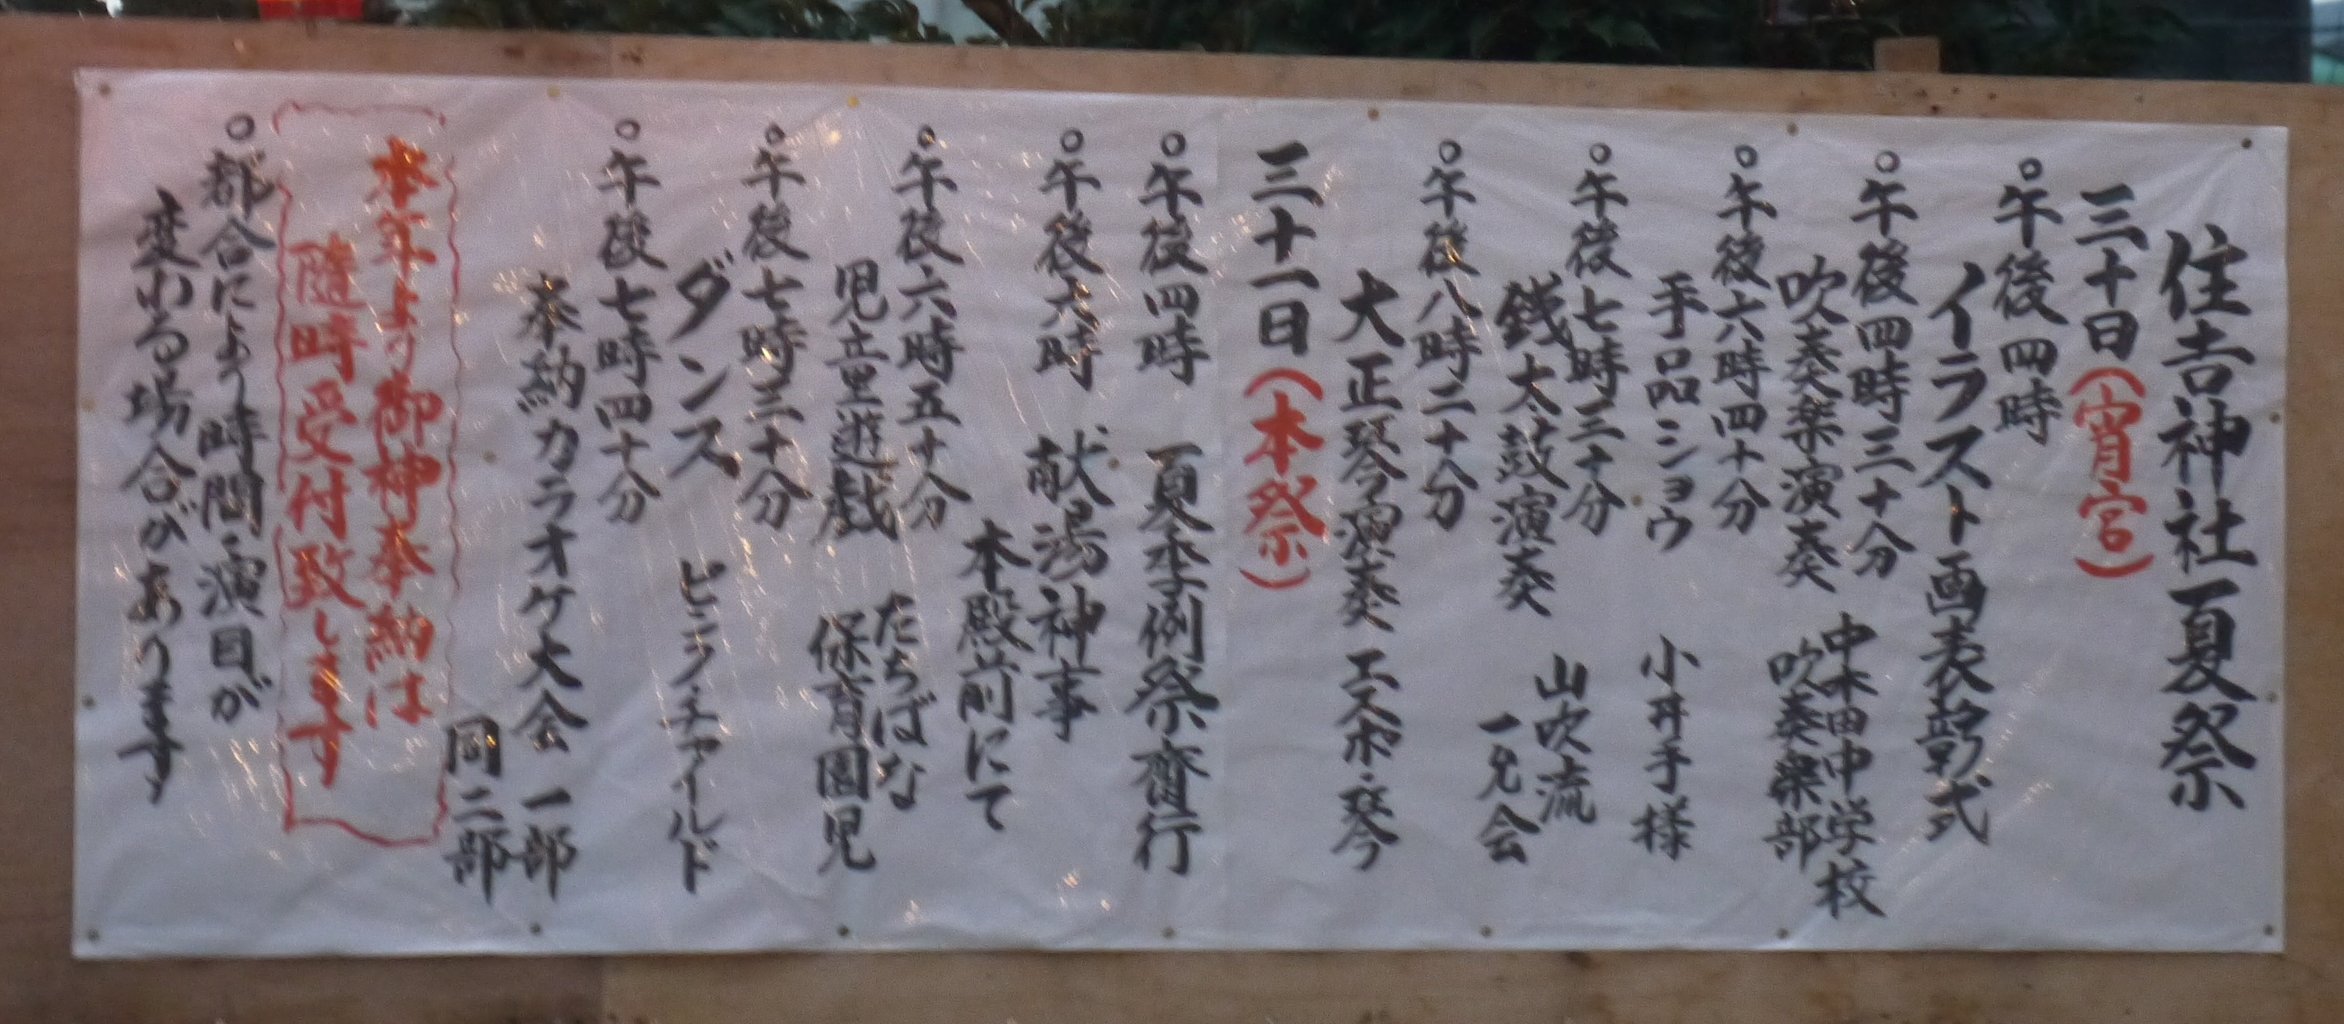 住吉神社夏祭
三十日(宵宮)
○午後四時
イラスト画表彰式
○午後四時三十分
吹奏楽演奏 中木田中学校
吹奏楽部
○午後六時四十分
手品ショウ 小井手様
○午後七時三十分
銭太鼓演奏 山吹流
一允会
○午後八時二十分
大正琴演奏 エスポ・琴
三十一日(本祭)
○午後四時 夏季例祭齋行
○午後六時 献湯神事
本殿前にて
○午後六時五十分
児童遊戯 たちばな
保育園児
○午後七時三十分
ダンス ピンク・チャイルド
○午後七時四十分
奉納カラオケ大会 一部
同二部
本年より御神奉納は
随時受付致します
○都合により時間・演目が
変わる場合があります